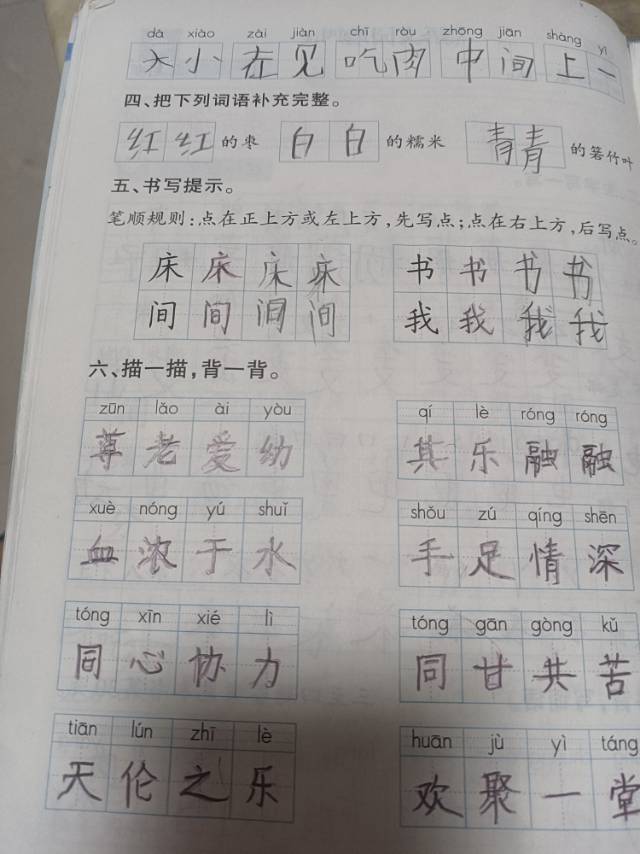 dà xiǎo zài jiàn chī ròu zhōng jiān shàng yī
大小 在见 吃肉 中间 上一
四、把下列词语补充完整。
红红的枣 白白的糯米 青青的箬竹叶
五、书写提示。
笔顺规则:点在正上方或左上方,先写点;点在右上方,后写点。
床床床床 书书书书
间间间间 我我我我
六、描一描,背一背。
zūn lǎo ài yòu qí lè róng róng
尊老爱幼 其乐融融
xuè nóng yú shuǐ shǒu zú qíng shēn
血浓于水 手足情深
tóng xīn xié lì tóng gān gòng kǔ
同心协力 同甘共苦
tiān lún zhī lè huān jù yì táng
天伦之乐 欢聚一堂